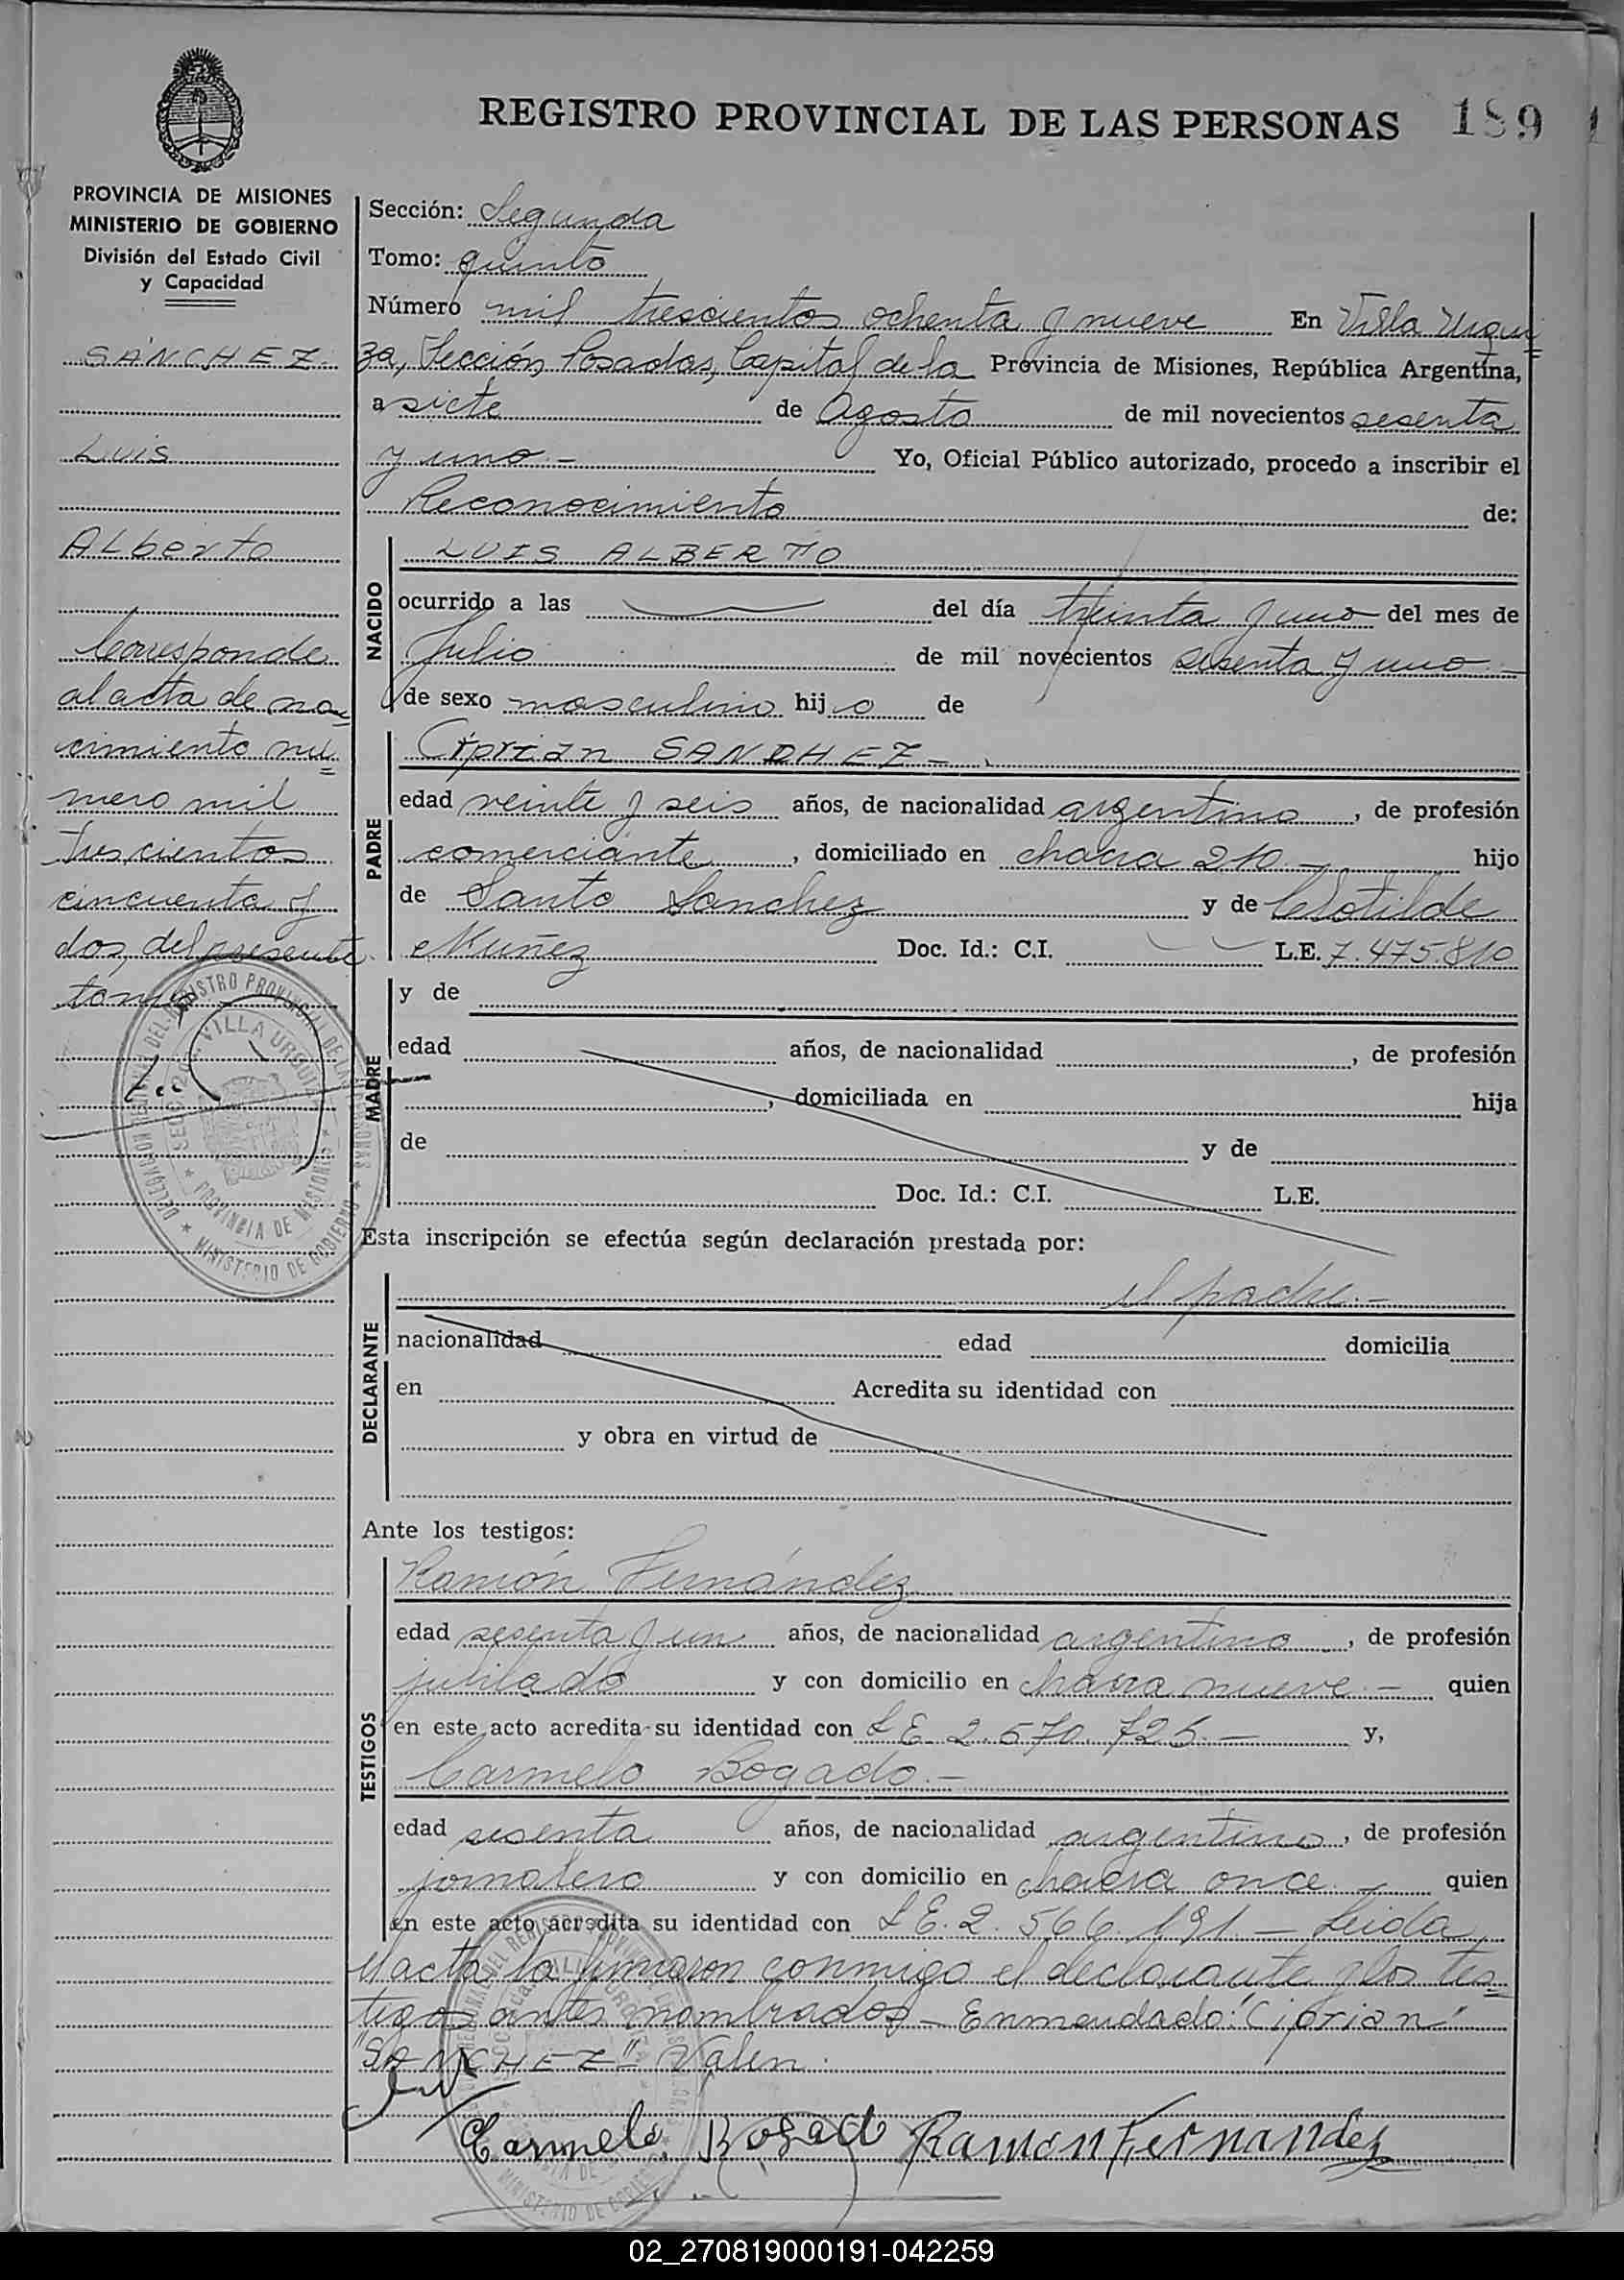 REGISTRO PROVINCIAL DE LAS PERSONAS 189
PROVINCIA DE MISIONES
MINISTERIO DE GOBIERNO
División del Estado Civil
y Capacidad
SÁNCHEZ
Luis
Alberto
Corresponde
al acta de na=
cimiento nú=
mero mil
Trescientos
cincuenta y
dos, del presente
tomo
Sección: Segunda
Tomo: quinto
Número mil trescientos ochenta y nueve En Villa Urqui=
za, Sección Posadas, Capital de la Provincia de Misiones, República Argentina,
a siete de Agosto de mil novecientos sesenta
y uno.- Yo, Oficial Público autorizado, procedo a inscribir el
Reconocimiento de:
NACIDO
LUIS ALBERTO
ocurrido a las del día treinta y uno del mes de
Julio de mil novecientos sesenta y uno
de sexo masculino hijo de
PADRE
Ciprian SANCHEZ -
edad veinte y seis años, de nacionalidad argentino, de profesión
comerciante, domiciliado en chacra 210.- hijo
de Santo Sanchez y de Clotilde
Nuñez Doc. Id.: C.I. L.E. 7.475.810
MADRE
y de
edad años, de nacionalidad , de profesión
, domiciliada en hija
de y de
Doc. Id.: C.I. L.E.
Esta inscripción se efectúa según declaración prestada por:
DECLARANTE
el padre.-
nacionalidad edad domicilia
en Acredita su identidad con
y obra en virtud de
Ante los testigos:
TESTIGOS
Ramón Fernández
edad sesenta y un años, de nacionalidad argentino, de profesión
jubilado y con domicilio en chacra nueve.- quien
en este acto acredita su identidad con L E. 2.570.725.- y,
Carmelo Bogado.-
edad sesenta años, de nacionalidad argentino, de profesión
jornalero y con domicilio en chacra once.- quien
en este acto acredita su identidad con L E. 2.566.191.- Leida
el acta la firmaron conmigo el declarante y los tes=
tigos antes nombrados - Enmendado: "Ciprian"
"SANCHEZ" Valen.
Carmelo Bogado Ramon Fernandez
02_270819000191-042259